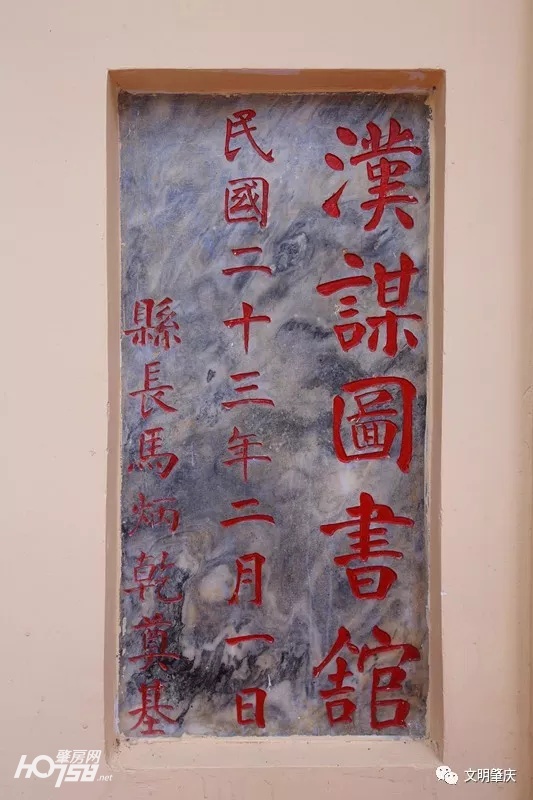 漢謀圖書舘
民國二十三年二月一日
縣長馬炳乾奠基
肇房网
HO758.net
文明肇庆